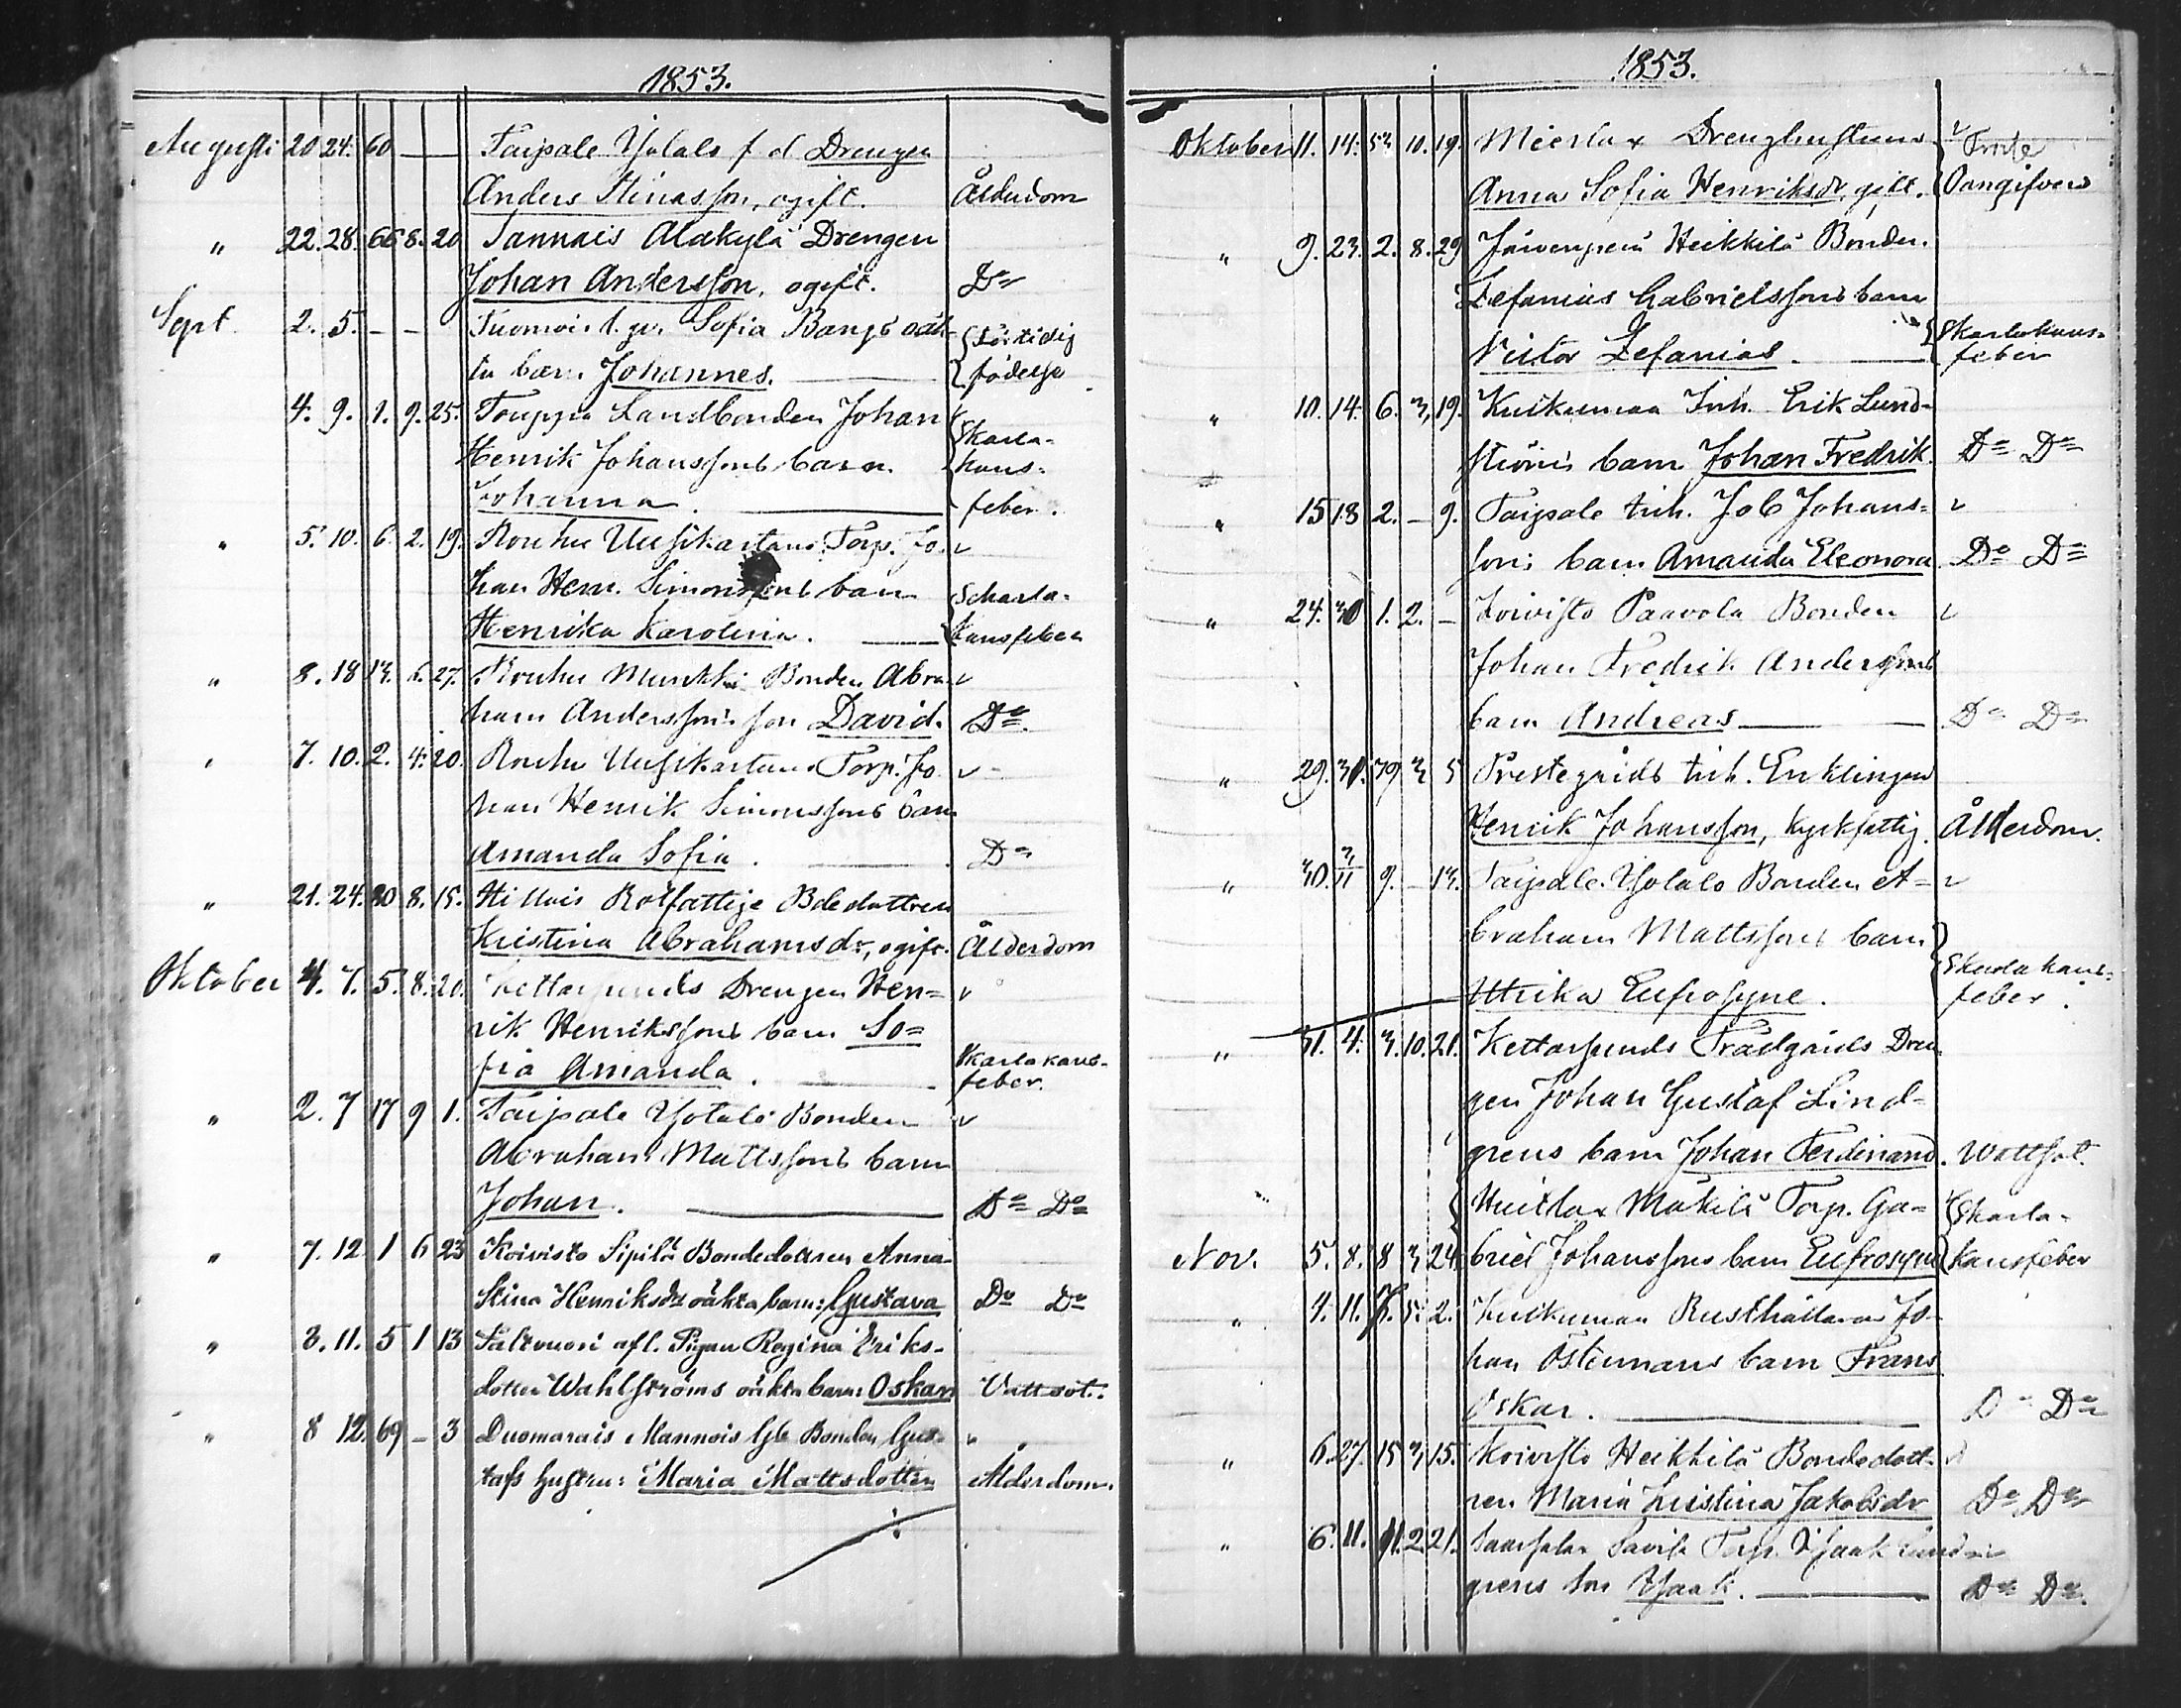 1853.
Augusti 20 24. 60 — Taipale Yolals f d Drengen
Anders Stinasson, ogift. Ålderdom
" 22. 28. 66 8. 20 Sannais Alakylä Drengen
Johan Andersson, ogift. Do
Sept. 2. 5. – – Sofia Bangs oäk-
ta barn Johannes. Förtidig
födelse
4. 9. 1. 9. 25. Landbonden Johan
Henrik Johanssons barn Skarla-
kans-
Johanna. feber.
" 5. 10. 6. 2. 19. Rouhu Uusikartano Torp. Jo-
han Henr. Simonssons barn Scharla-
Henrika Karolina. kansfeber
" 8. 18 13. 6. 27. Rouhu Munkki Bonden Abra-
ham Anderssons son David. Do
" 7. 10. 2. 4. 20. Rouhu Uusikartano Torp. Jo-
han Henrik Simonssons barn
Amanda Sofia. Do
" 21. 24. 80 8. 15. Rotfattige Bdedottren
Kristina Abrahamsdr, ogift. Ålderdom
Oktober 4. 7. 5. 8. 20. Kettarsunds Drengen Hen-
rik Henrikssons barn So-
fia Amanda. Skarlakans-
feber.
" 2. 7 17 9 1. Taipale Yolals Bonden
Abraham Mattssons barn
Johan. Do Do
" 7. 12 1 6 23 Koivisto Sipilä Bondedottren Anna
Stina Henriksdr oäkta barn: Gustava Do Do
" 8. 11. 5 1 13 Saltvuori afl. Pigan Regina Eriks-
dotter Wahlströms oäkta barn: Oskar Vattsot.
" 8 12. 69 – 3 Duomarais Mannois Gle Bonden Gus-
tafs hustru: Maria Mattsdotter Ålderdom.
1853.
Oktober 11. 14. 53 10. 19. Mierlax Drenghustrun
Anna Sofia Henriksdr. gift. Oangifven
" 9. 23. 2. 8. 29 Järvenperä Heikkilä Bonden
Zefanias Gabrielssons barn
Viktor Zefanias. Skarlakans-
feber
" 10. 14. 6. 3. 19. Kuikumaa Inh. Erik Lund-
ströms barn Johan Fredrik. Do Do
" 15 18 2. – 9. Taipale Inh. Job Johans-
sons barn Amanda Eleonora. Do Do
" 24. 30 1. 2. – Koivisto Paavola Bonden
Johan Fredrik Anderssons
barn Andreas Do Do
" 29. 30. 79 3 5 Prestegårds Inh. Enklingen
Henrik Johansson, kyrkfattig. Ålderdom.
" 30. 3/11 9. – 13. Taipale Yolals Bonden A-
braham Mattssons barn
Ulrika Eufrosyne. Skarlakans-
feber.
" 31. 4. 3. 10. 21. Kettarsunds Trädgårds Dren-
gen Johan Gustaf Lind-
grens barn Johan Ferdinand. Wattsot.
Mäkilä Torp. Ga- Skarla-
Nov. 5. 8. 8 3 24. briel Johanssons barn Eufrosyne kansfeber
" 4. 11. 5. 2. Kuikumaa Rusthållaren Jo-
han Östermans barn Frans
Oskar. Do Do
" 6. 27. 15 3 15. Koivisto Heikkilä Bondedott-
ren Maria Kristina Jakobsdr Do Do
" 6. 11. 11. 2 21. Torp. Isaak Lind-
grens son Isaak. Do Do.